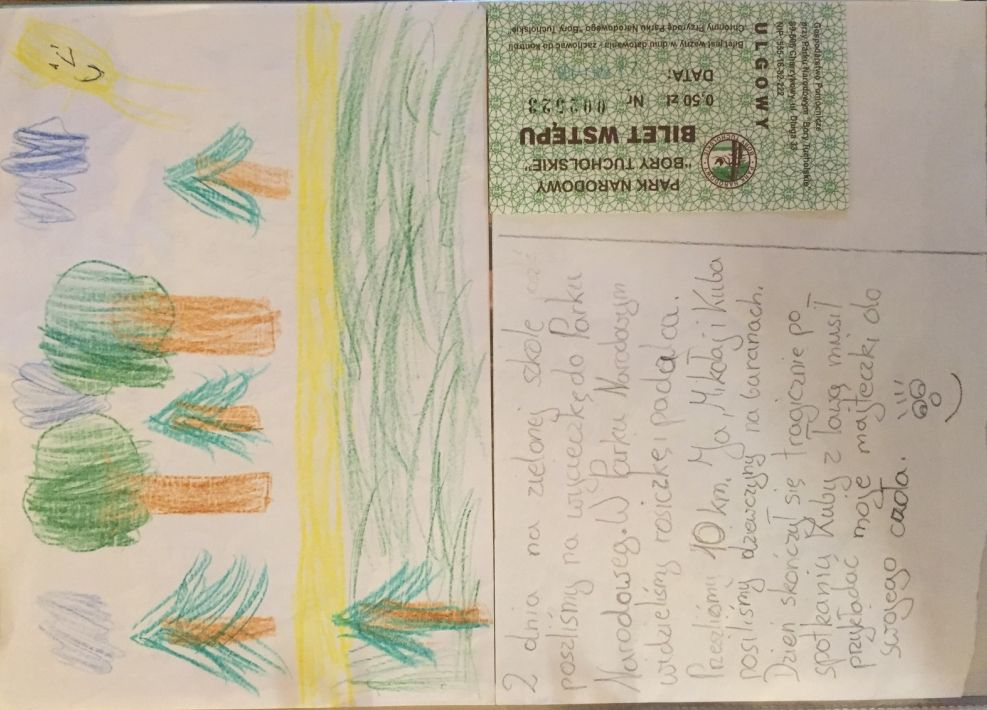 PARK NARODOWY
"BORY TUCHOLSKIE"
BILET WSTĘPU
0,50 zł Nr 002523
DATA:
ULGOWY
Gospodarstwo Pomocnicze
przy Parku Narodowym "Bory Tucholskie"
Charzykowy, ul. Długa 33
NIP
Bilet jest ważny w dniu datowania - zachować do kontroli
Chrońmy Przyrodę Parku Narodowego "Bory Tucholskie"
2 dnia na zielonej szkole
poszliśmy na wycieczkę do Parku
Narodoweg. W Parku Narodowym
widzieliśmy rosiczkę i padalca.
Przeszliśmy 10 km. Ja, Mikołaj i Kuba
nosiliśmy dziewczyny na baranach.
Dzień skończył się tragicznie po
spotkaniu Kuby z Tają musił
przykładać moje majteczki do
swojego czoła.